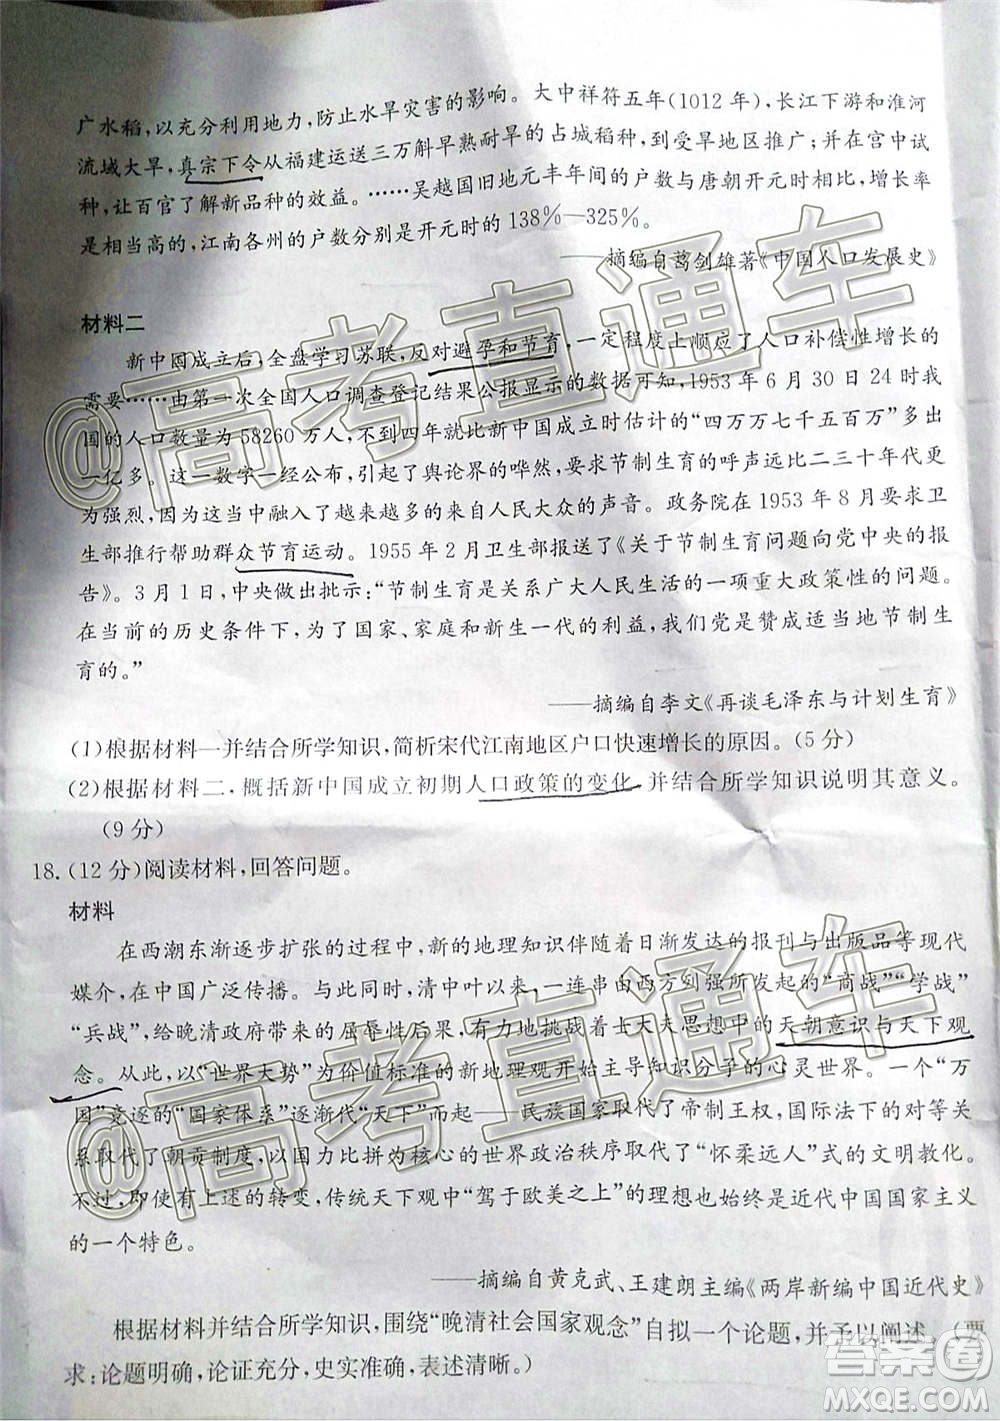 广水稻，以充分利用地力，防止水旱灾害的影响。大中祥符五年(1012年)，长江下游和淮河
流域大旱，真宗下令从福建运送三万斛早熟耐旱的占城稻种，到受旱地区推广；并在宫中试
种，让百官了解新品种的效益。……吴越国旧地元丰年间的户数与唐朝开元时相比，增长率
是相当高的，江南各州的户数分别是开元时的138%—325%。
——摘编自葛剑雄著《中国人口发展史》
材料二
新中国成立后，全盘学习苏联，反对避孕和节育，一定程度上顺应了人口补偿性增长的
需要……由第一次全国人口调查登记结果公报显示的数据可知，1953年6月30日24时我
国的人口数量为58260万人，不到四年就比新中国成立时估计的“四万万七千五百万”多出
一亿多。这一数字一经公布，引起了舆论界的哗然，要求节制生育的呼声远比二三十年代更
为强烈，因为这当中融入了越来越多的来自人民大众的声音。政务院在1953年8月要求卫
生部推行帮助群众节育运动。1955年2月卫生部报送了《关于节制生育问题向党中央的报
告》。3月1日，中央做出批示：“节制生育是关系广大人民生活的一项重大政策性的问题。
在当前的历史条件下，为了国家、家庭和新生一代的利益，我们党是赞成适当地节制生
育的。”
——摘编自李文《再谈毛泽东与计划生育》
(1)根据材料一并结合所学知识，简析宋代江南地区户口快速增长的原因。(5分)
(2)根据材料二，概括新中国成立初期人口政策的变化，并结合所学知识说明其意义。
(9分)
18.(12分)阅读材料，回答问题。
材料
在西潮东渐逐步扩张的过程中，新的地理知识伴随着日渐发达的报刊与出版品等现代
媒介，在中国广泛传播。与此同时，清中叶以来，一连串由西方列强所发起的“商战”“学战”
“兵战”，给晚清政府带来的屈辱性后果，有力地挑战着士大夫思想中的天朝意识与天下观
念。从此，以“世界大势”为价值标准的新地理观开始进入知识分子的心灵世界。一个“万
国”竞逐的“国家体系”逐渐代“天下”而起——民族国家取代了帝制王权，国际法下的对等关
系取代了朝贡制度，以国力比拼为核心的世界政治秩序取代了“怀柔远人”式的文明教化。
不过，即使有上述的转变，传统天下观中“驾于欧美之上”的理想也始终是近代中国国家主义
的一个特色。
——摘编自黄克武、王建朗主编《两岸新编中国近代史》
根据材料并结合所学知识，围绕“晚清社会国家观念”自拟一个论题，并予以阐述。(要
求：论题明确，论证充分，史实准确，表述清晰。)
@高考直通车
@高考直通车
答案圈
MXQE.COM